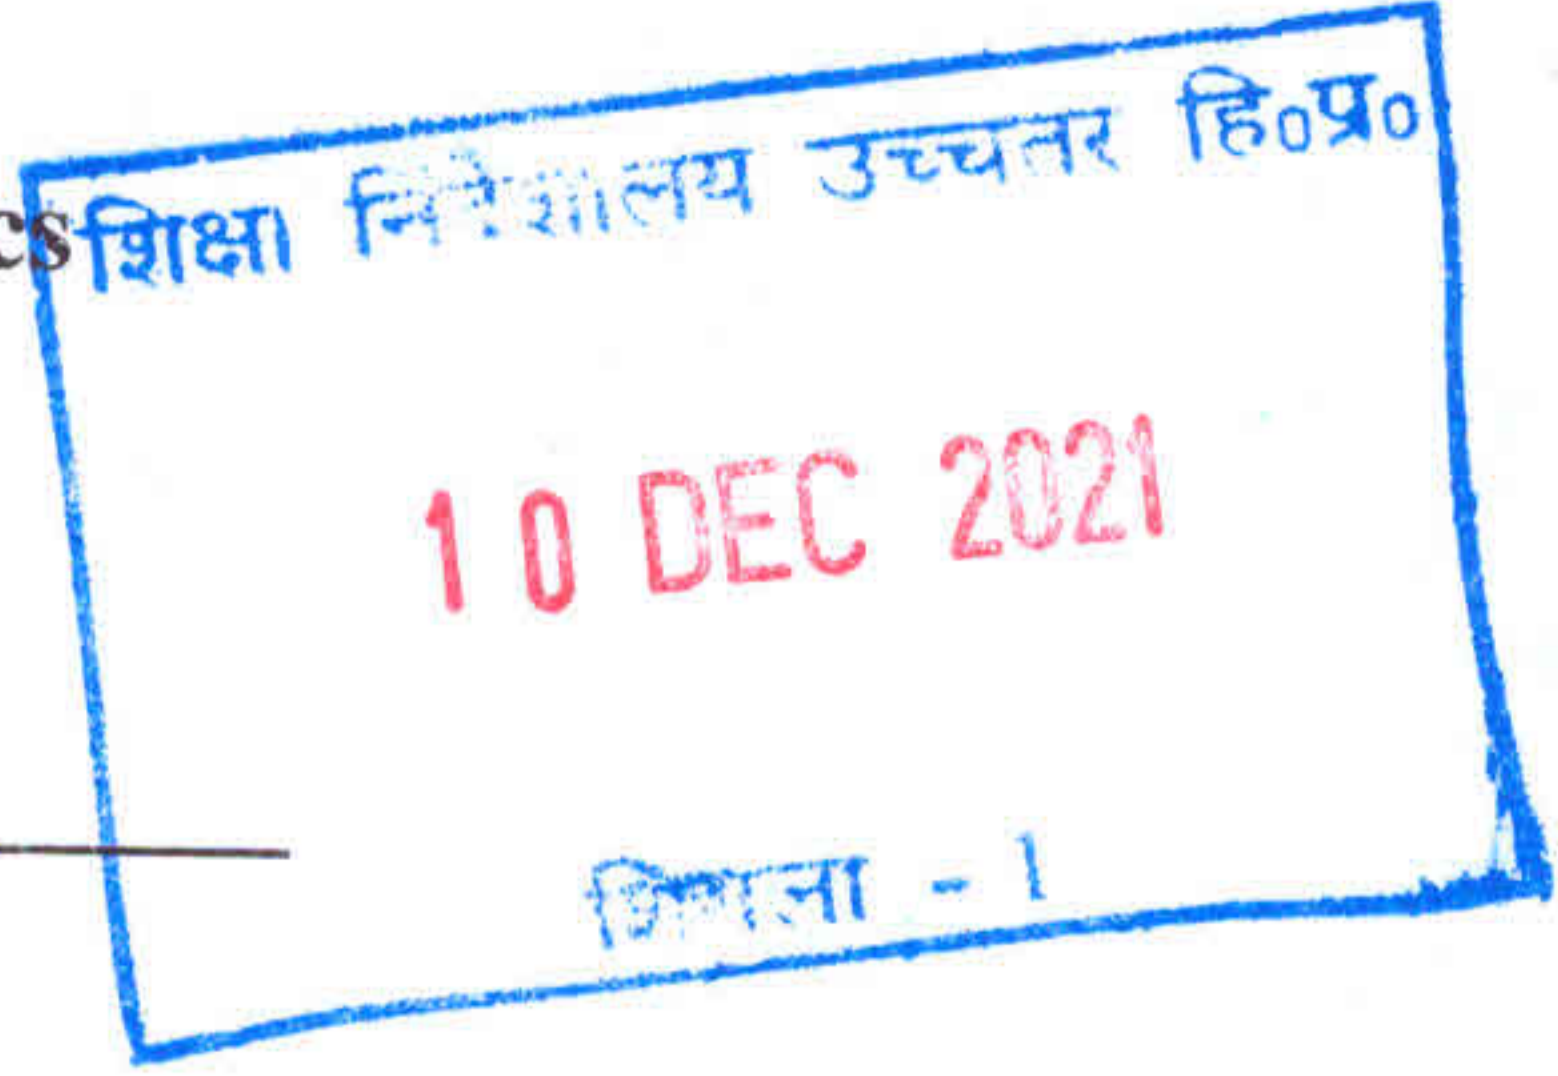 cs
शिक्षा निदेशालय उच्चतर हि०प्र०
10 DEC 2021
शिमला - 1